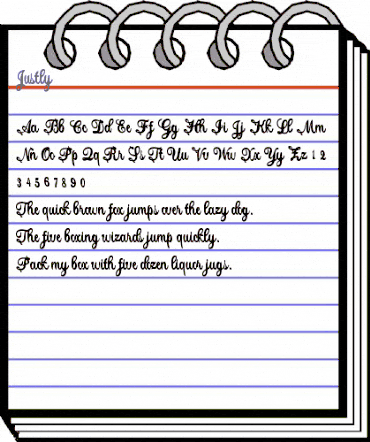 Justly
Aa Bb Cc Dd Ee Ff Gg Hh Ii Jj Kk Ll Mm
Nn Oo Pp Qq Rr Ss Tt Uu Vv Ww Xx Yy Zz 1 2
3 4 5 6 7 8 9 0
The quick brown fox jumps over the lazy dog.
The five boxing wizards jump quickly.
Pack my box with five dozen liquor jugs.